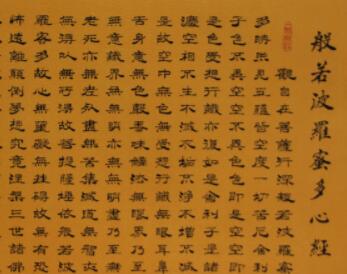 般若波羅蜜多心經
觀自在菩薩行深般若波羅蜜
多時照見五蘊皆空度一切苦厄舍利
子色不異空空不異色色即是空空即
是色受想行識亦復如是舍利子是諸
法空相不生不滅不垢不淨不增不減
是故空中無色無受想行識無眼耳鼻
舌身意無色聲香味觸法無眼界乃至
無意識界無無明亦無無明盡乃至無
老死亦無老死盡無苦集滅道無智亦
無得以無所得故菩提薩埵依般若波
羅蜜多故心無罣礙無罣礙故無有恐
怖遠離顛倒夢想究竟涅槃三世諸佛